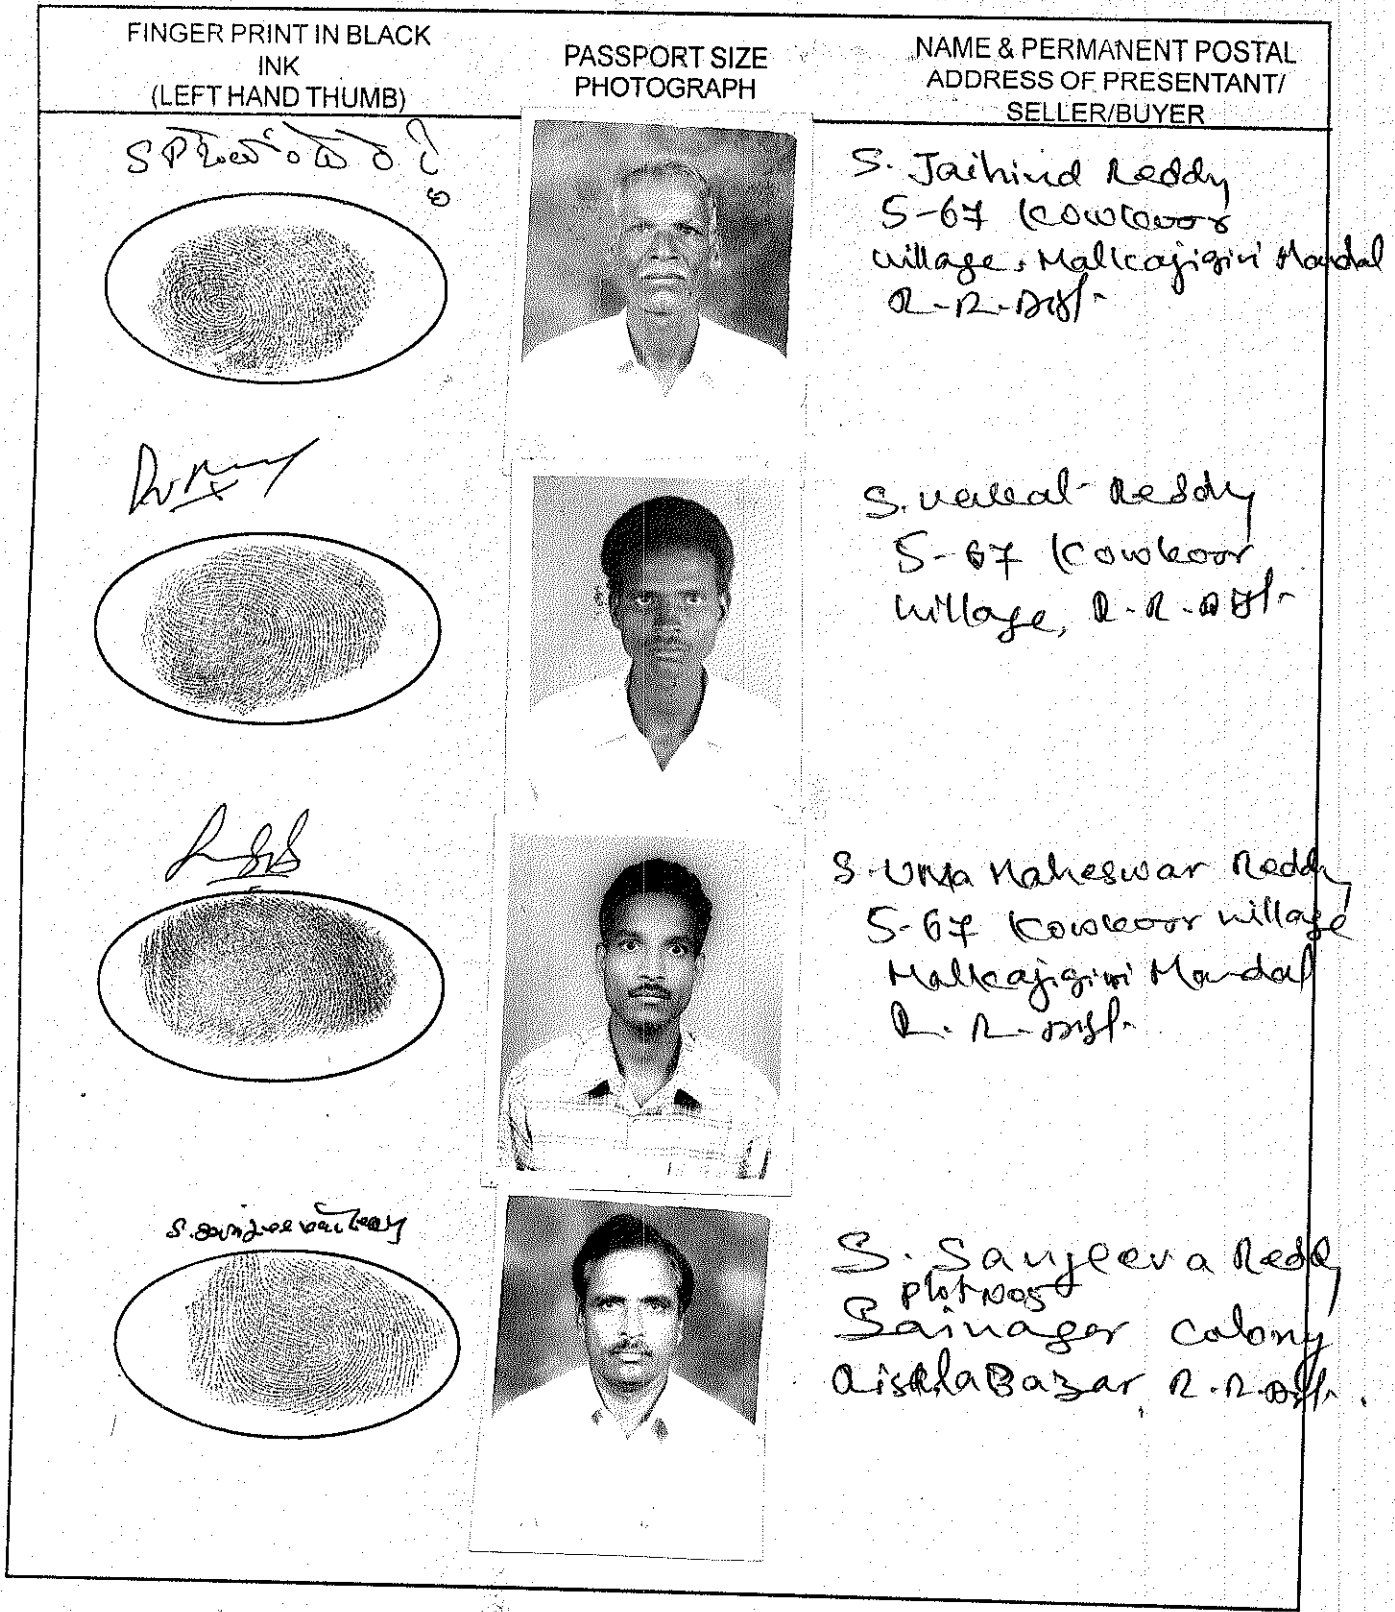 FINGER PRINT IN BLACK
INK
(LEFT HAND THUMB)
PASSPORT SIZE
PHOTOGRAPH
NAME & PERMANENT POSTAL
ADDRESS OF PRESENTANT/
SELLER/BUYER
S. Jaihind Reddy
5-67 Kowkoor
village, Malkajigiri Mandal
R.R. Dist.
S. Reddy
5-67 Kowkoor
village, R.R. Dist.
S. Uma Maheswar Reddy
5-67 Kowkoor village
Malkajigiri Mandal
R.R. Dist.
S. Sanjeeva Reddy
S. Sanjeeva Reddy
Plot No 5
Sainagar Colony
Bazar R.R. Dist.